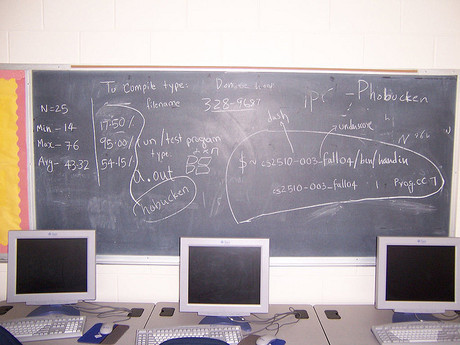 To Compile type:
filename
328-9687
ipr - Phobucken
N=25
Min - 14
Max - 76
Avg - 43.32
17.50%
95.00%
54.15%
run/test program
type.
a.out
hobucken
dash
underscore
$ ~ cs2510-003_fall04/bin/handin
cs2510-003_fall04 1 Prog.CC